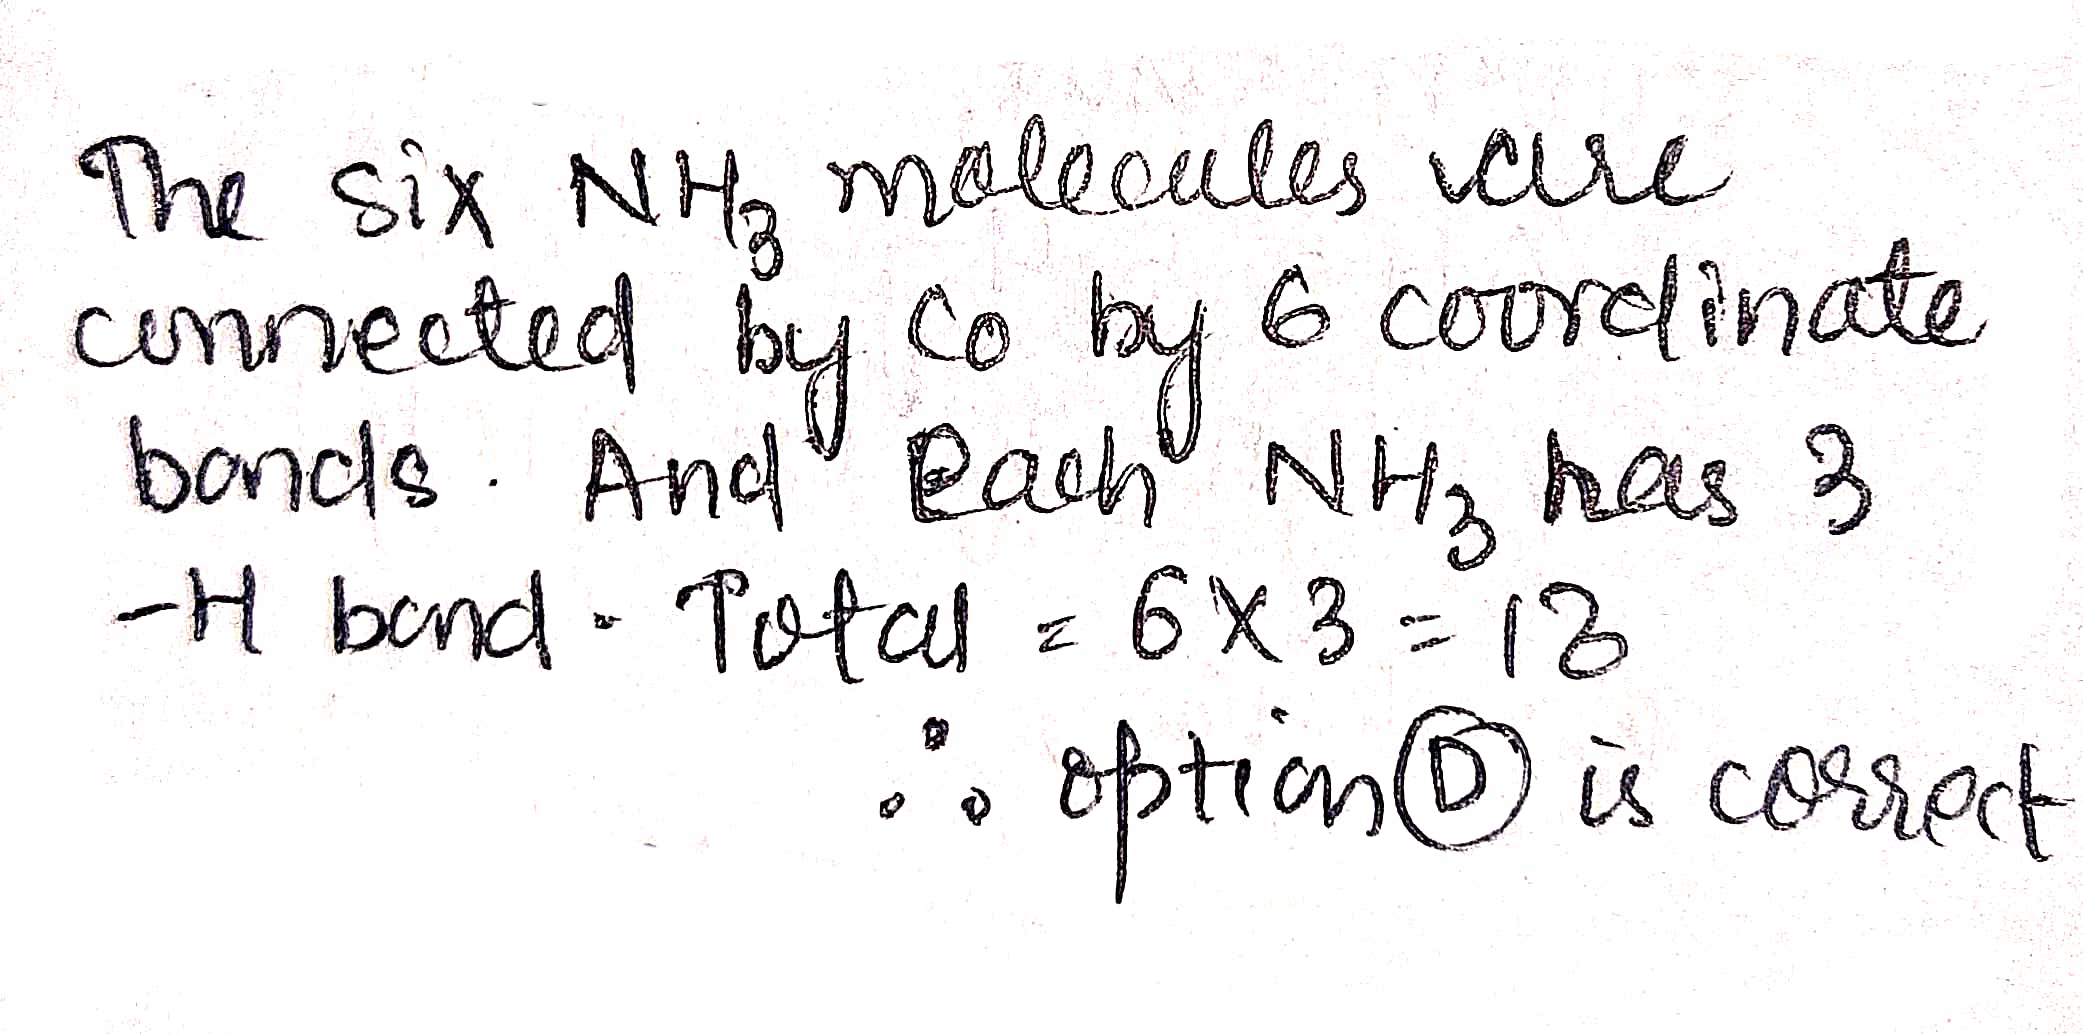 The six NH₃ molecules are
connected by Co by 6 coordinate
bonds. And each NH₃ has 3
-H bond. Total = 6X3 = 18
∴ option Ⓓ is correct